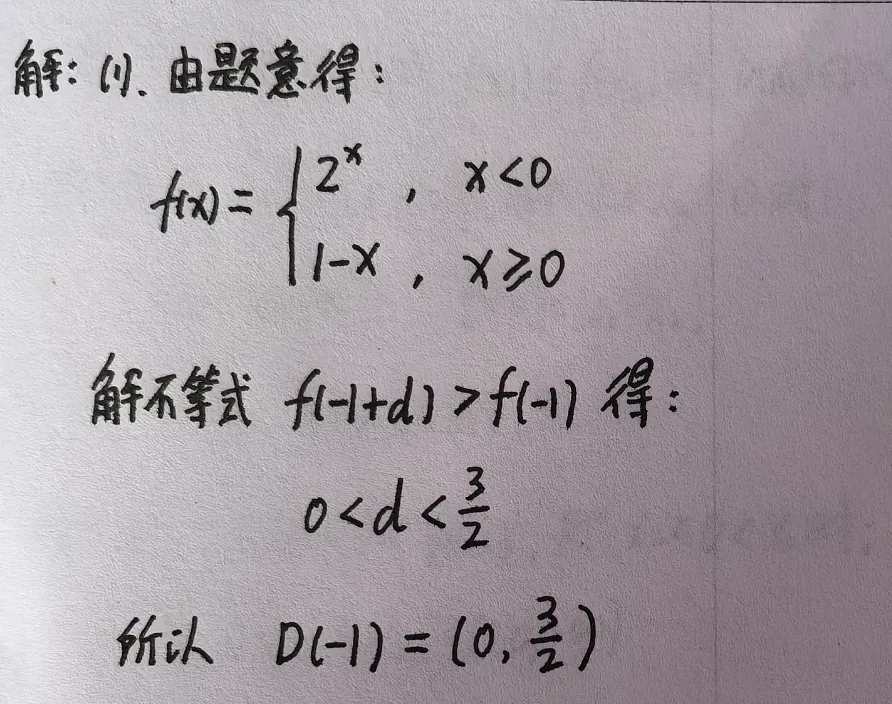 解: (1). 由题意得:
f(x) = { 2^x , x<0
1-x , x≥0
解不等式 f(-1+d) > f(-1) 得:
0<d<3/2
所以 D(-1) = (0, 3/2)